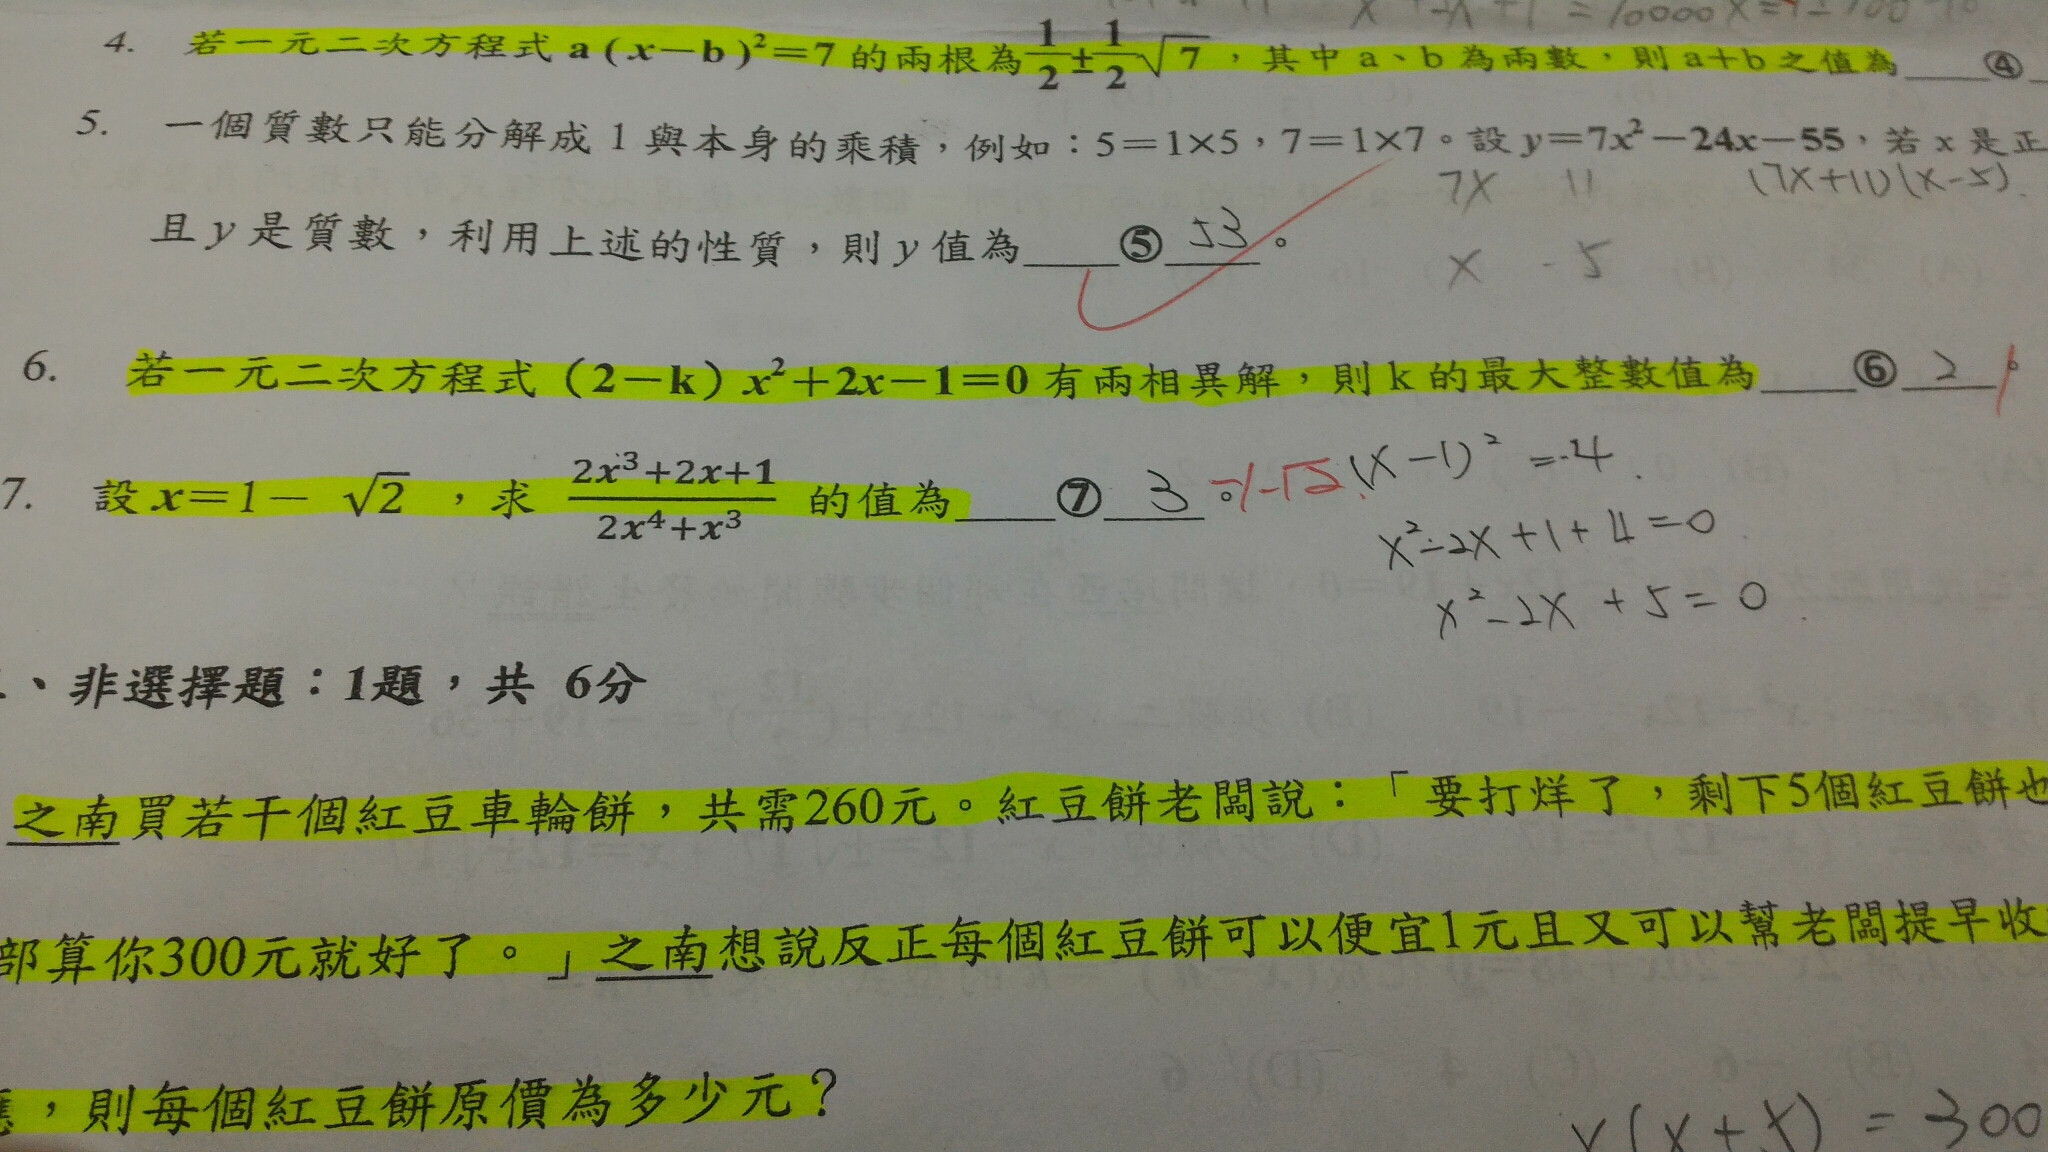 4. 若一元二次方程式 a(x−b)²=7 的兩根為 1/2 ± 1/2 √7,其中 a、b 為兩數,則 a+b 之值為____④_
5. 一個質數只能分解成 1 與本身的乘積,例如:5=1×5,7=1×7。設 y=7x²−24x−55,若 x 是正
7x 11 (7x+11)(x-5).
且 y 是質數,利用上述的性質,則 y 值為____⑤ 53 。
x -5
6. 若一元二次方程式(2−k)x²+2x−1=0 有兩相異解,則 k 的最大整數值為____⑥ 2 。
7. 設 x=1− √2 ,求 (2x³+2x+1)/(2x⁴+x³) 的值為____⑦ 3 。 -1-√2 (x-1)² =-4.
x²-2x+1+4=0
x²-2x+5=0
、非選擇題:1題,共 6分
之南買若干個紅豆車輪餅,共需260元。紅豆餅老闆說:「要打烊了,剩下5個紅豆餅也
部算你300元就好了。」之南想說反正每個紅豆餅可以便宜1元且又可以幫老闆提早收
,則每個紅豆餅原價為多少元?
= 300